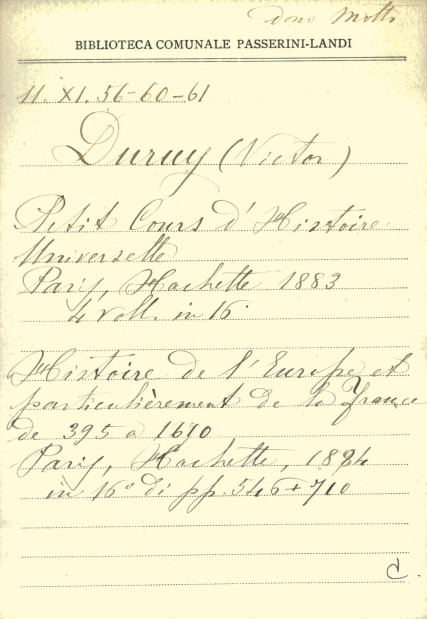 dono Motti
BIBLIOTECA COMUNALE PASSERINI-LANDI
11. XI. 56-60-61
Duruy (Victor)
Petit Cours d'Histoire
Universelle
Paris, Hachette 1883
4 voll. in 16.
Histoire de l'Europe et
particulièrement de la France
de 395 a 1610
Paris, Hachette, 1884
in 16° di pp. 546+710
C.